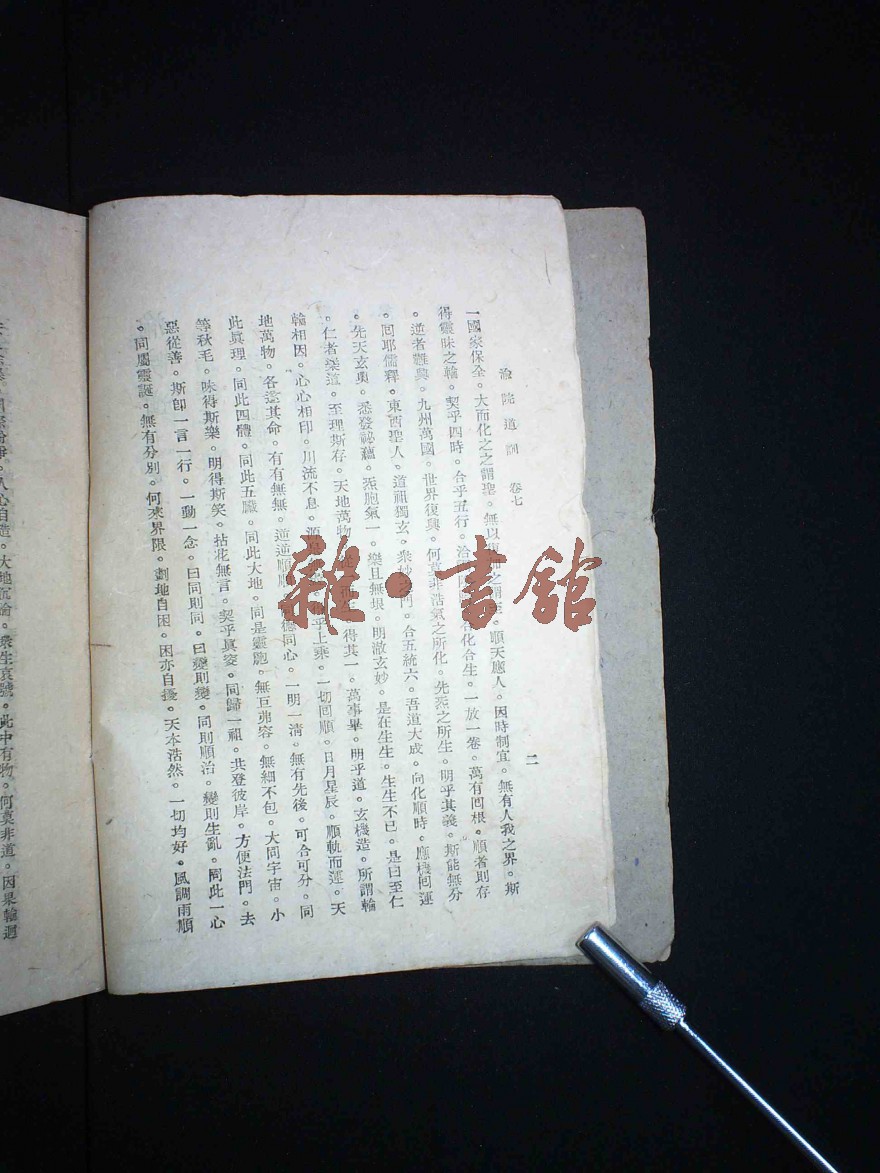 渝院道訓　卷七
二
一國家保全。大而化之之謂聖。無以順天應人。因時制宜。無有人我之界。斯
得靈昧之輪。契乎四時。合乎五行。洽化合生。一放一卷。萬有囘根。順者則存
。逆者難與。九州萬國。世界復興。何莫非浩氣之所化。先炁之所生。明乎其義。斯能無分
。囘耶儒釋。東西聖人。道祖獨玄。衆妙之門。合五統六。吾道大成。向化順時。應機囘運
。先天玄奧。悉發祕蘊。炁胞氣一。樂且無垠。明澈玄妙。是在生生。生生不已。是曰至仁
。仁者樂道。至理斯存。天地萬物得其一。萬事畢。明乎道。玄機造。所謂輪
輪相因。心心相印。川流不息。乎上乘。一切囘順。日月星辰。順軌而運。天
地萬物。各遂其命。有有無無。逆逆順德同心。一明一清。無有先後。可合可分。同
此眞理。同此四體。同此五臟。同此大地。同是靈胞。無巨弗容。無細不包。大同宇宙。小
等秋毛。味得斯樂。明得斯笑。拈花無言。契乎眞姿。同歸一祖。共登彼岸。方便法門。去
惡從善。斯卽一言一行。一動一念。曰同則同。曰變則變。同則順治。變則生亂。同此一心
。同屬靈誕。無有分別。何來界限。劃地自困。困亦自擾。天本浩然。一切均好。風調雨順
人心自造。大地沉淪。衆生哀號。此中有物。何莫非道。因果輪迴
雜·書館